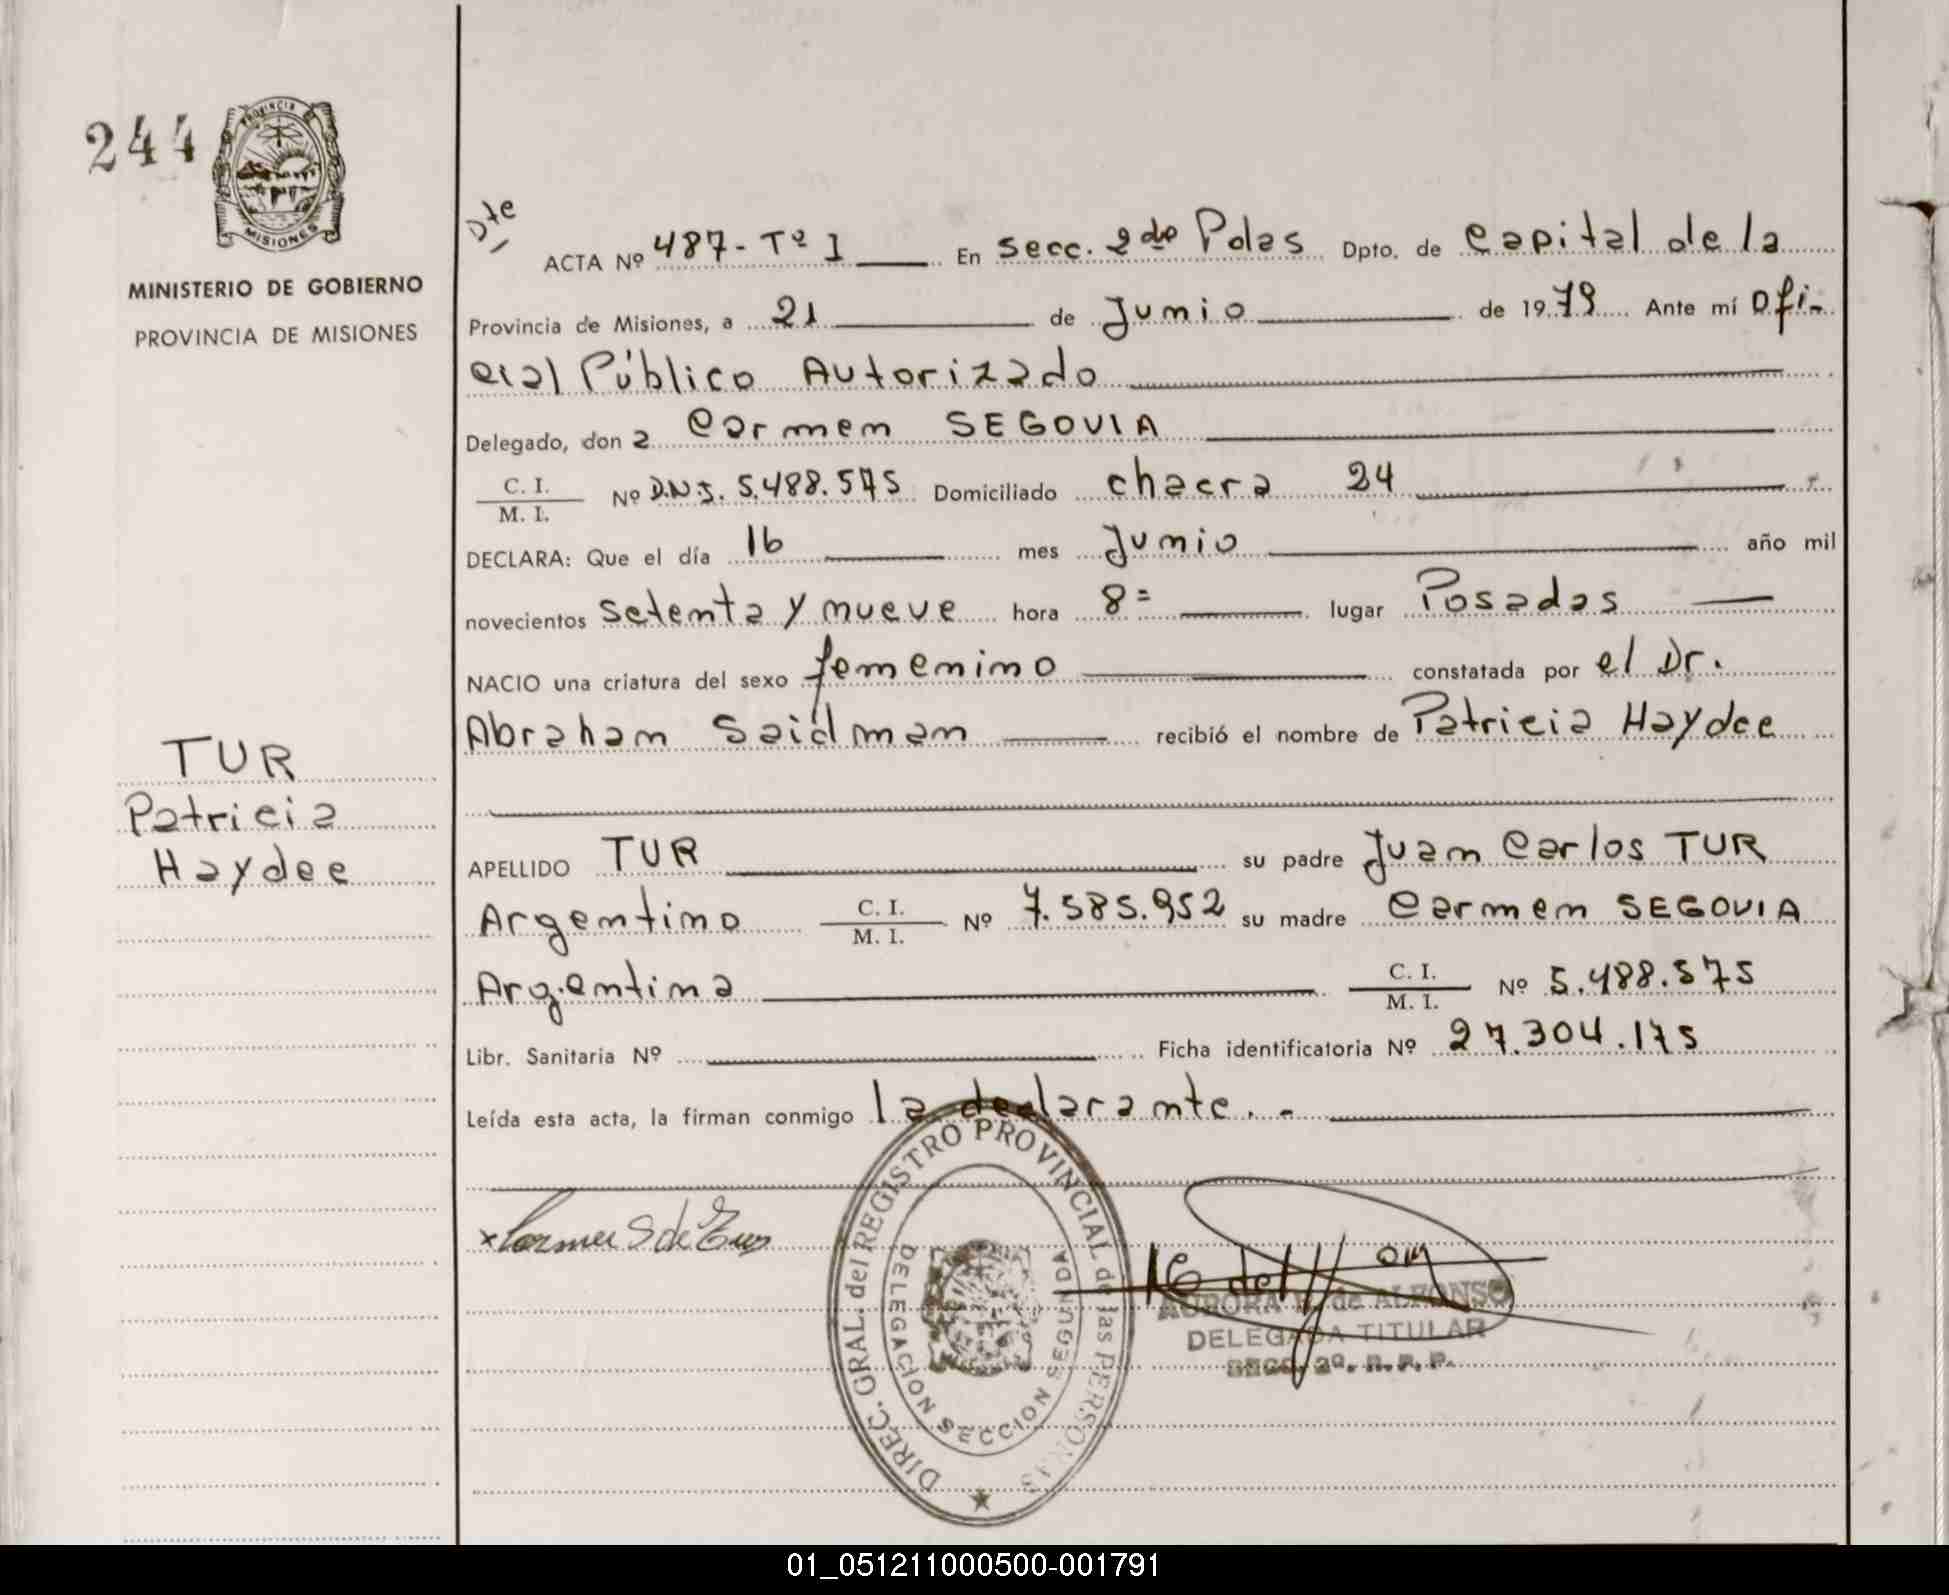 244
PROVINCIA DE
MISIONES
MINISTERIO DE GOBIERNO
PROVINCIA DE MISIONES
TUR
Patricia
Haydee
Dte
ACTA Nº 487 - Tº I En secc. 2do Pdas Dpto. de Capital de la
Provincia de Misiones, a 21 de Junio de 1979 Ante mí Ofi-
cial Público Autorizado
Delegado, don a Carmen SEGOVIA
C. I.
M. I. Nº D.N.I. 5.488.575 Domiciliado chacra 24
DECLARA: Que el día 16 mes Junio año mil
novecientos setenta y nueve hora 8= lugar Posadas
NACIO una criatura del sexo femenino constatada por el Dr.
Abraham Saidman recibió el nombre de Patricia Haydee
APELLIDO TUR su padre Juan Carlos TUR
Argentino C. I.
M. I. Nº 7.585.952 su madre Carmen SEGOVIA
Argentina C. I.
M. I. Nº 5.488.575
Libr. Sanitaria Nº Ficha identificatoria Nº 27.304.175
Leída esta acta, la firman conmigo la declarante. -
x Carmen S de Tur
DIREC. GRAL. del REGISTRO PROVINCIAL de las PERSONAS
DELEGACION SECCION SEGUNDA
AURORA de ALFONSO
DELEGADA TITULAR
SECC. 2º. R. P. P.
01_051211000500-001791